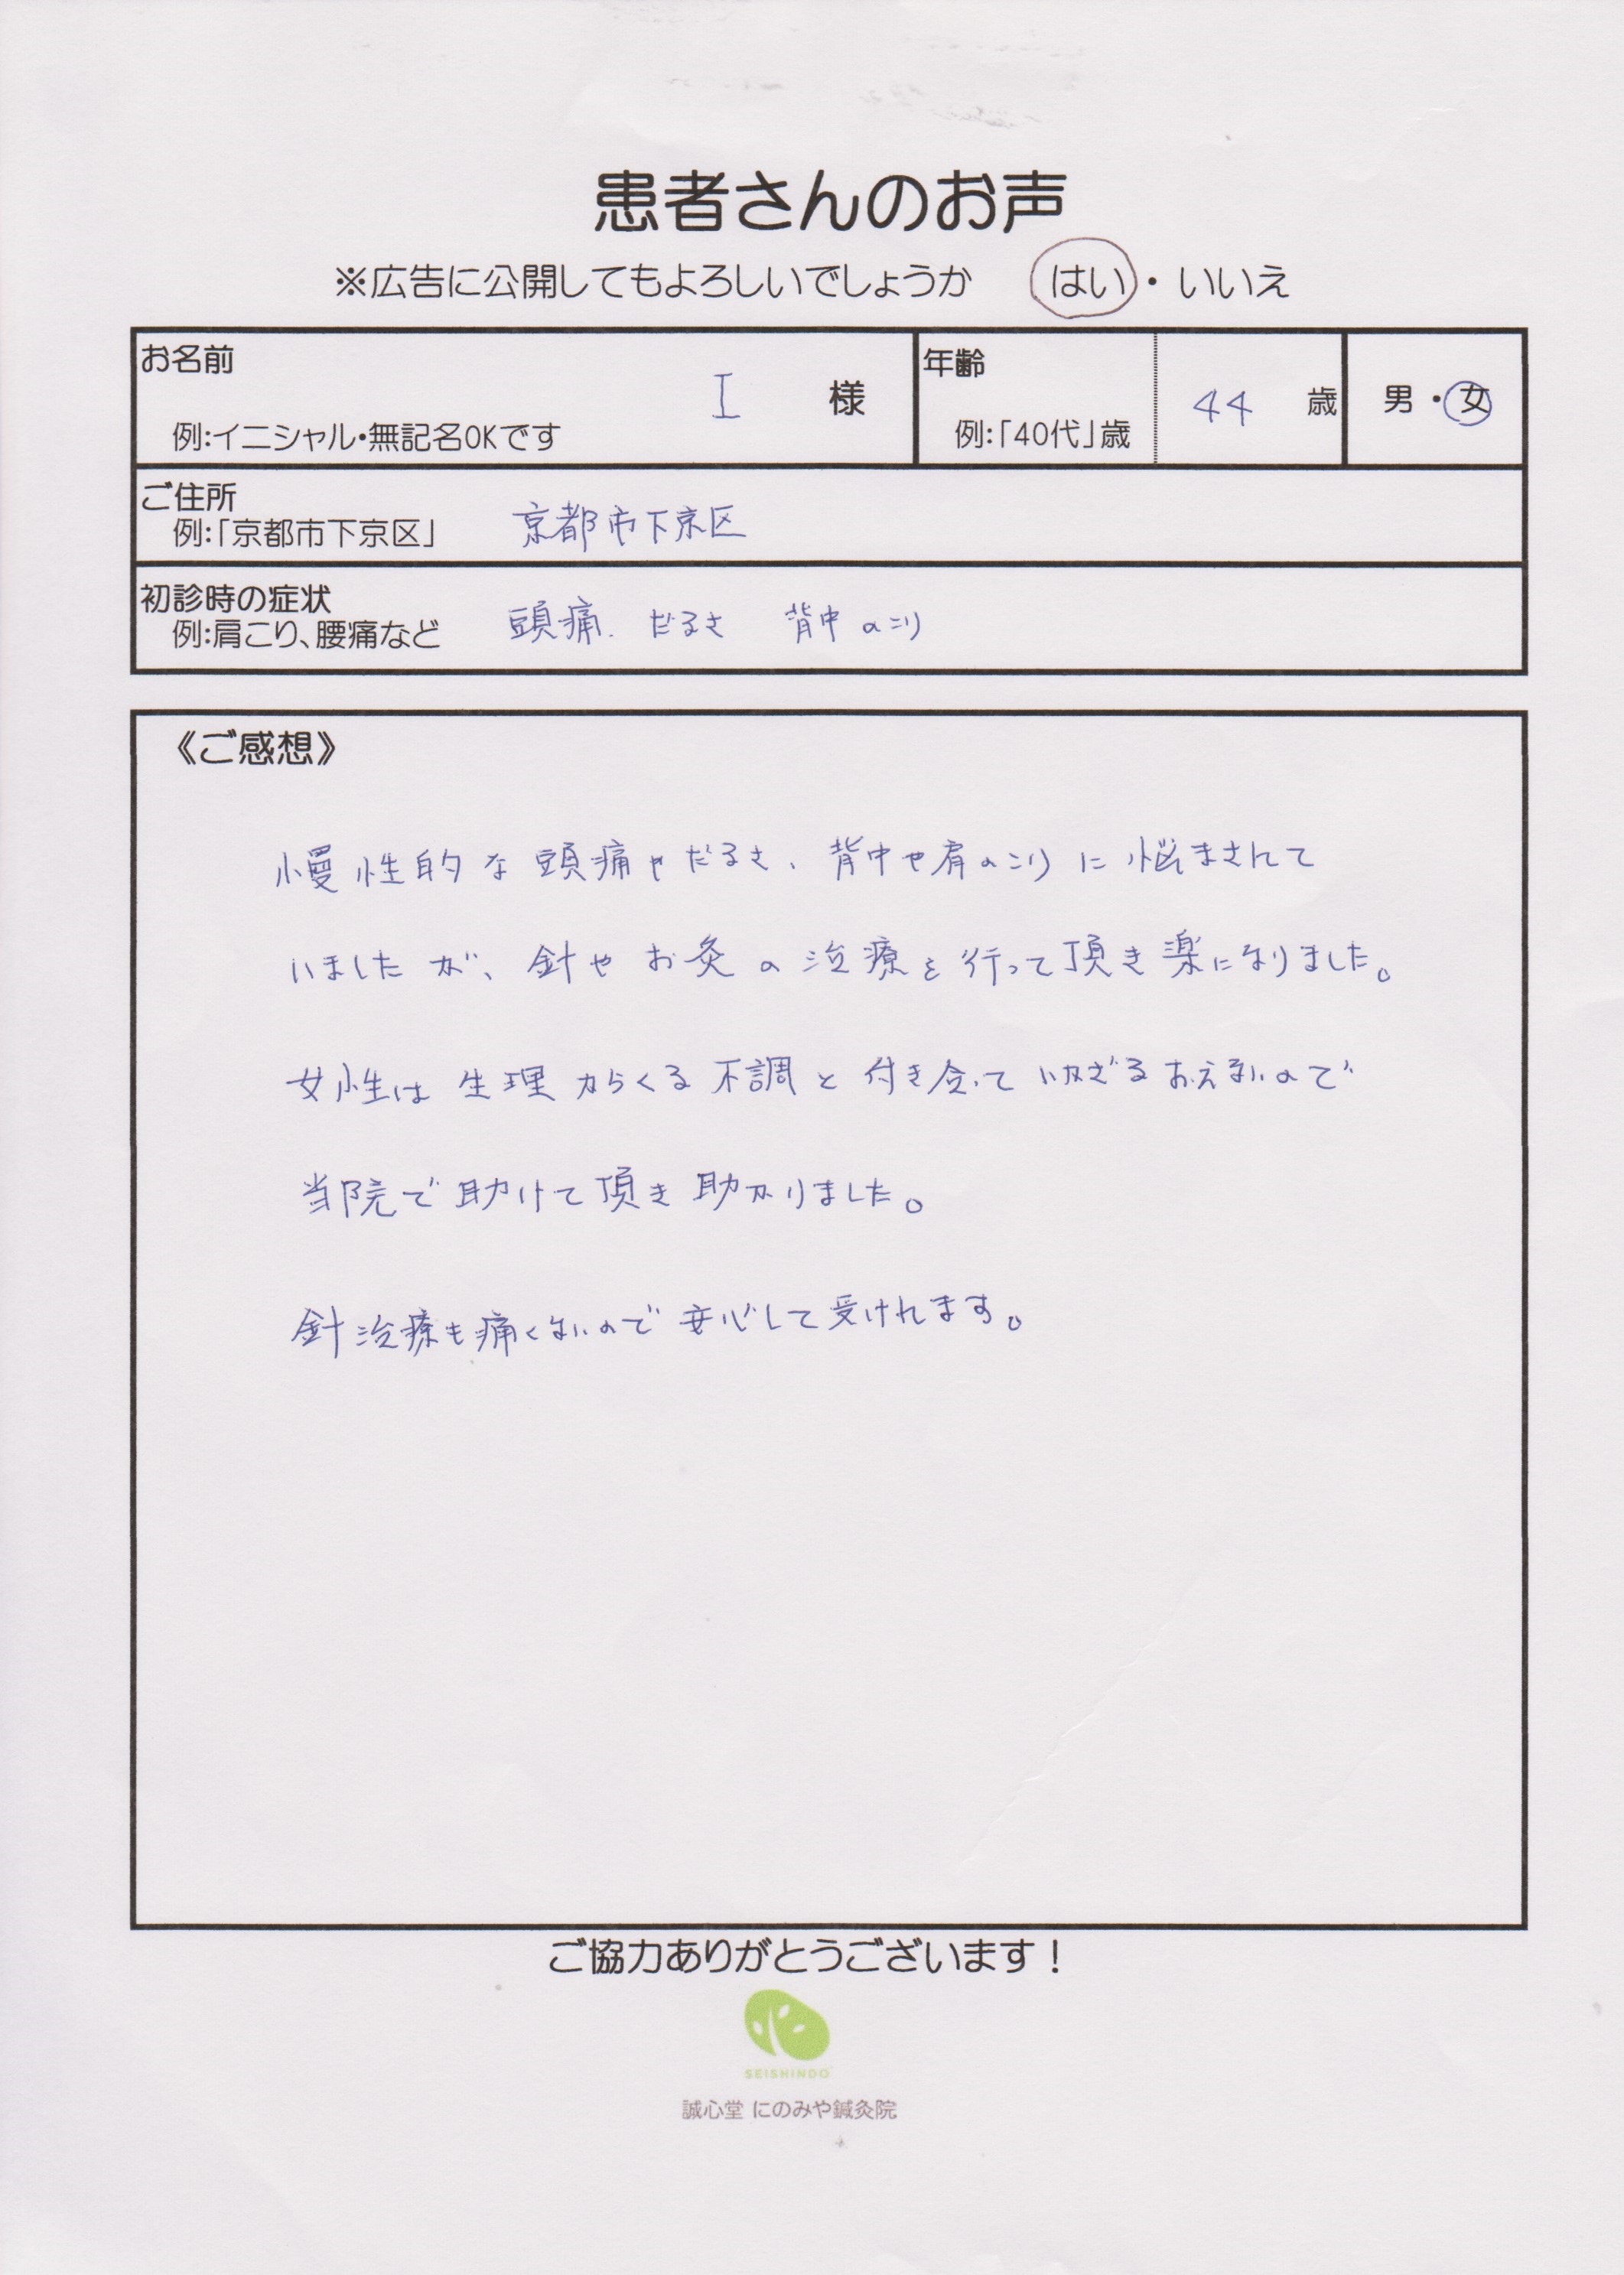 患者さんのお声
※広告に公開してもよろしいでしょうか はい・いいえ
お名前 I 様 年齢 44 歳 男・女
例:イニシャル・無記名OKです 例:「40代」歳
ご住所
例:「京都市下京区」 京都市下京区
初診時の症状
例:肩こり、腰痛など 頭痛、だるさ 背中のこり
《ご感想》
慢性的な頭痛やだるさ、背中や肩のこりに悩まされて
いましたが、針やお灸の治療を行って頂き楽になりました。
女性は生理からくる不調と付き合っていかざるおえないので
当院で助けて頂き助かりました。
針治療も痛くないので安心して受けれます。
ご協力ありがとうございます！
SEISHINDO
誠心堂 にのみや鍼灸院